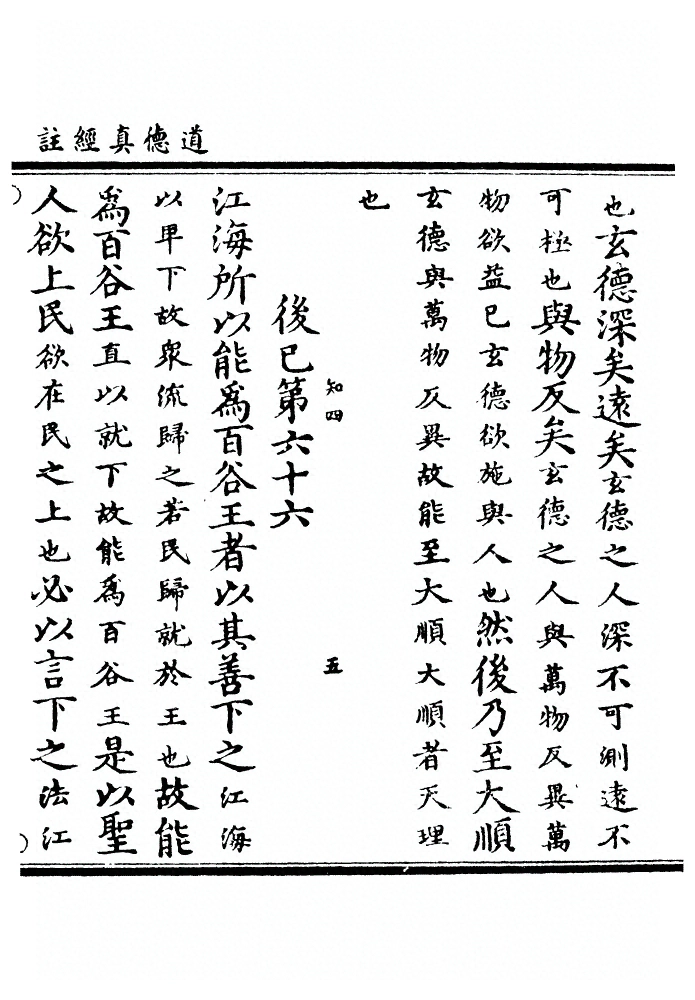 道德真經註
也玄德深矣遠矣玄德之人深不可測遠不
可極也與物反矣玄德之人與萬物反異萬
物欲益己玄德欲施與人也然後乃至大順
玄德與萬物反異故能至大順大順者天理
也
知四
五
後已第六十六
江海所以能為百谷王者以其善下之江海
以卑下故眾流歸之若民歸就於王也故能
為百谷王直以就下故能為百谷王是以聖
人欲上民欲在民之上也必以言下之法江